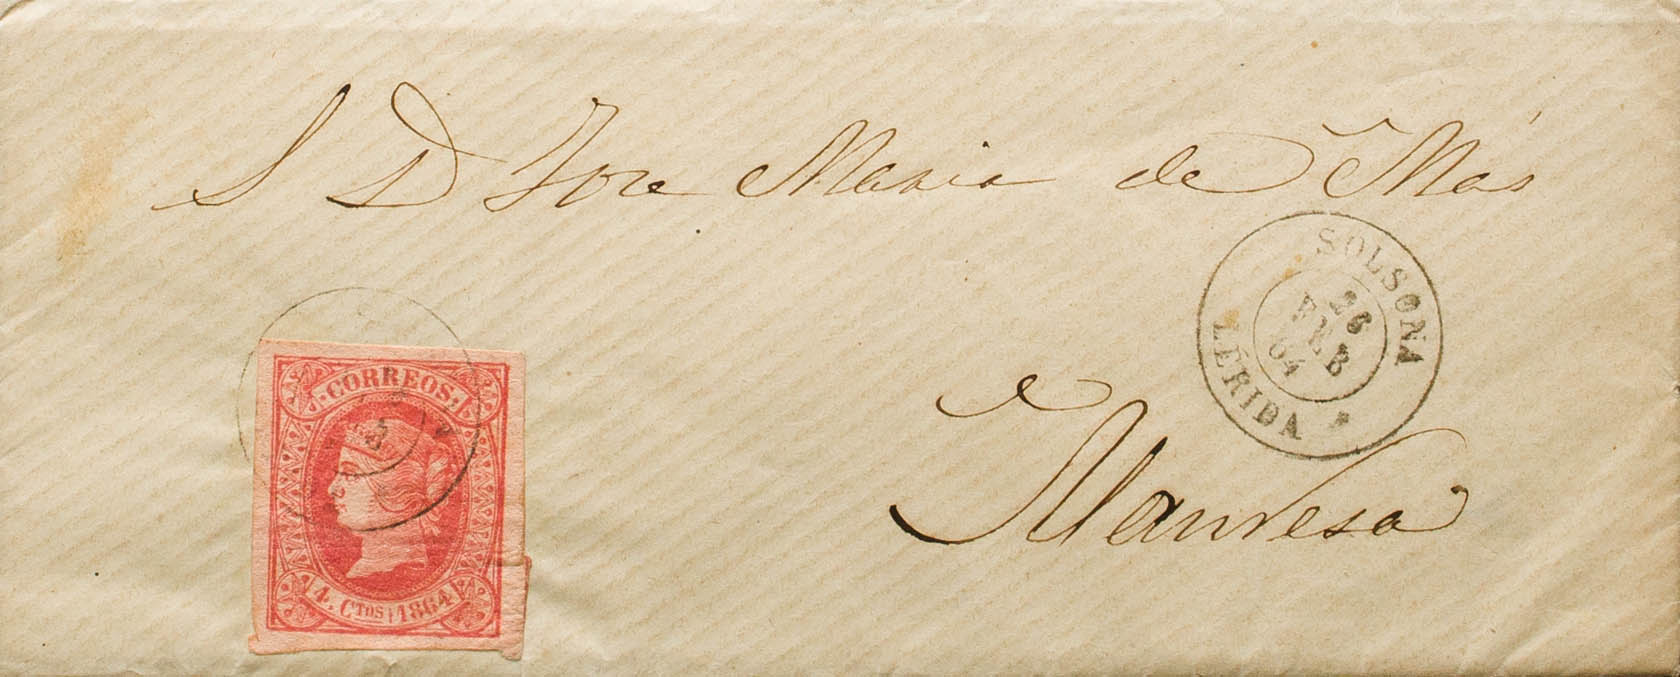 S D Jose Maria de Más
SOLSONA
26
FEB
64
LÉRIDA *
CORREOS
4 CTOS 1864
Manresa